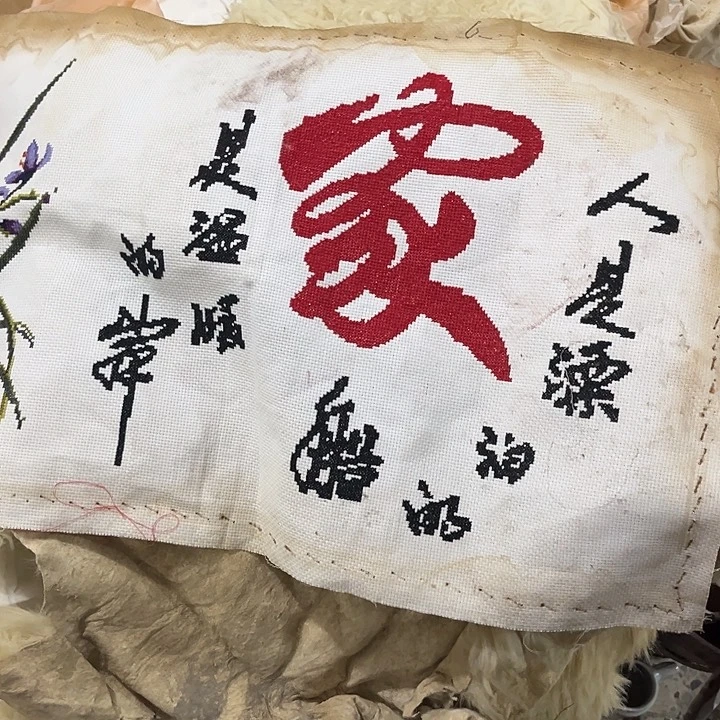 人是漂
泊的船
家
是温暖
的岸